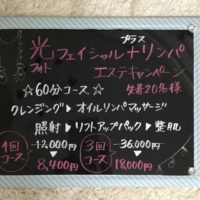 プラス
光フェイシャル+リンパ
フォト
エステキャンペーン
☆60分コース☆ 先着20名様
クレンジング▶オイルリンパマッサージ
照射▶リフトアップパック▶整肌
1回コース 12,000円▶8,400円
3回コース 36,000円▶18,000円